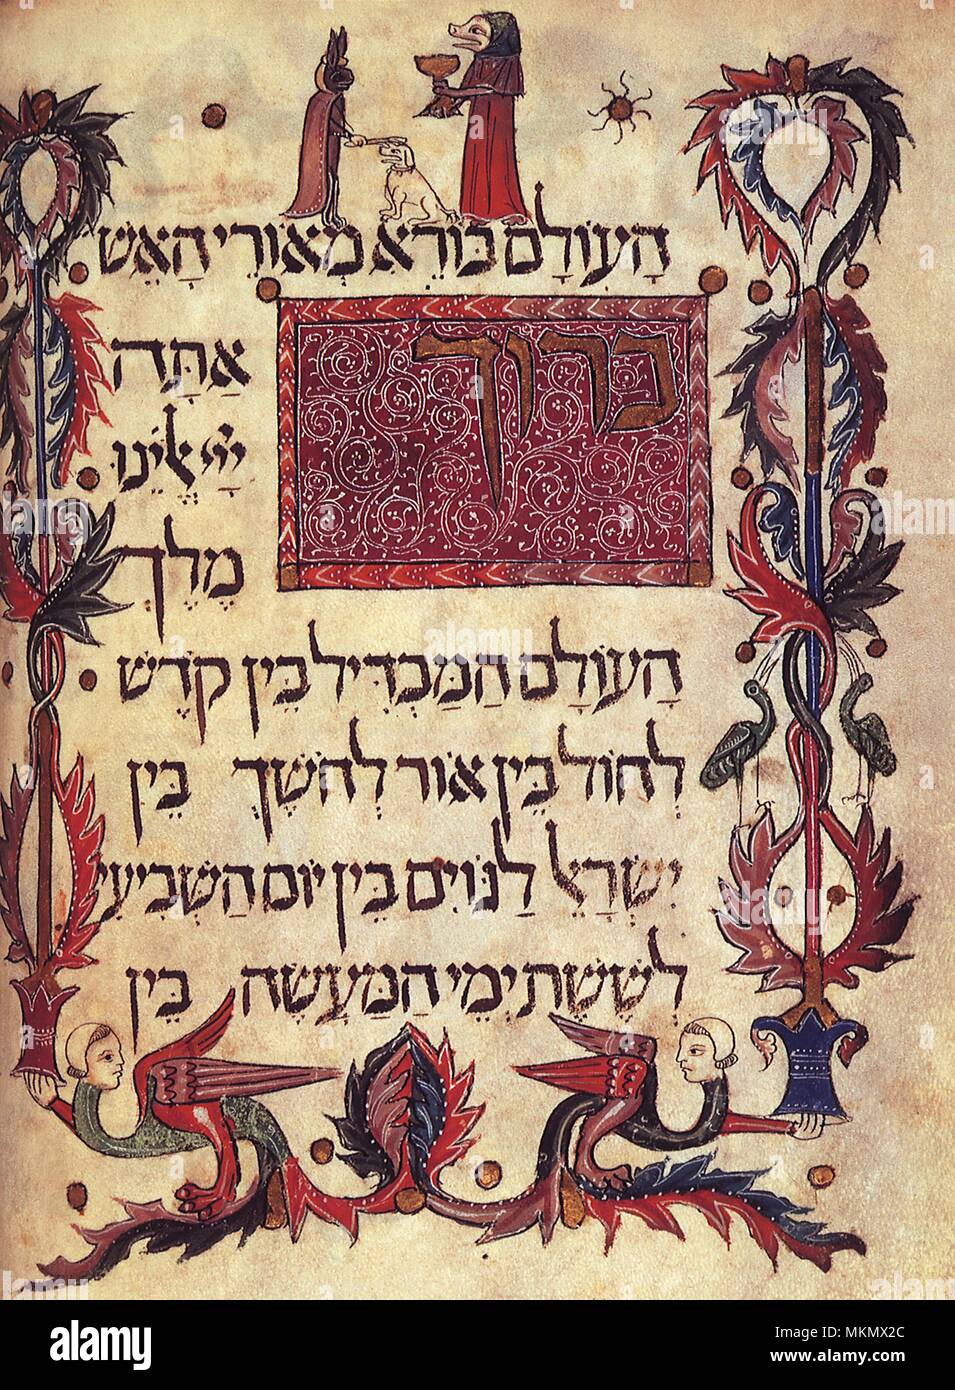 הָעוֹלָם בּוֹרֵא מְאוֹרֵי הָאֵשׁ
ברוך אַתָּה
יְיָ אֱלֹהֵינוּ
מֶלֶךְ
הָעוֹלָם הַמַּבְדִּיל בֵּין קֹדֶשׁ
לְחוֹל בֵּין אוֹר לְחֹשֶׁךְ בֵּין
יִשְׂרָאֵל לַגּוֹיִם בֵּין יוֹם הַשְּׁבִיעִי
לְשֵׁשֶׁת יְמֵי הַמַּעֲשֶׂה בֵּין
alamy
Image ID: MKMX2C
www.alamy.com